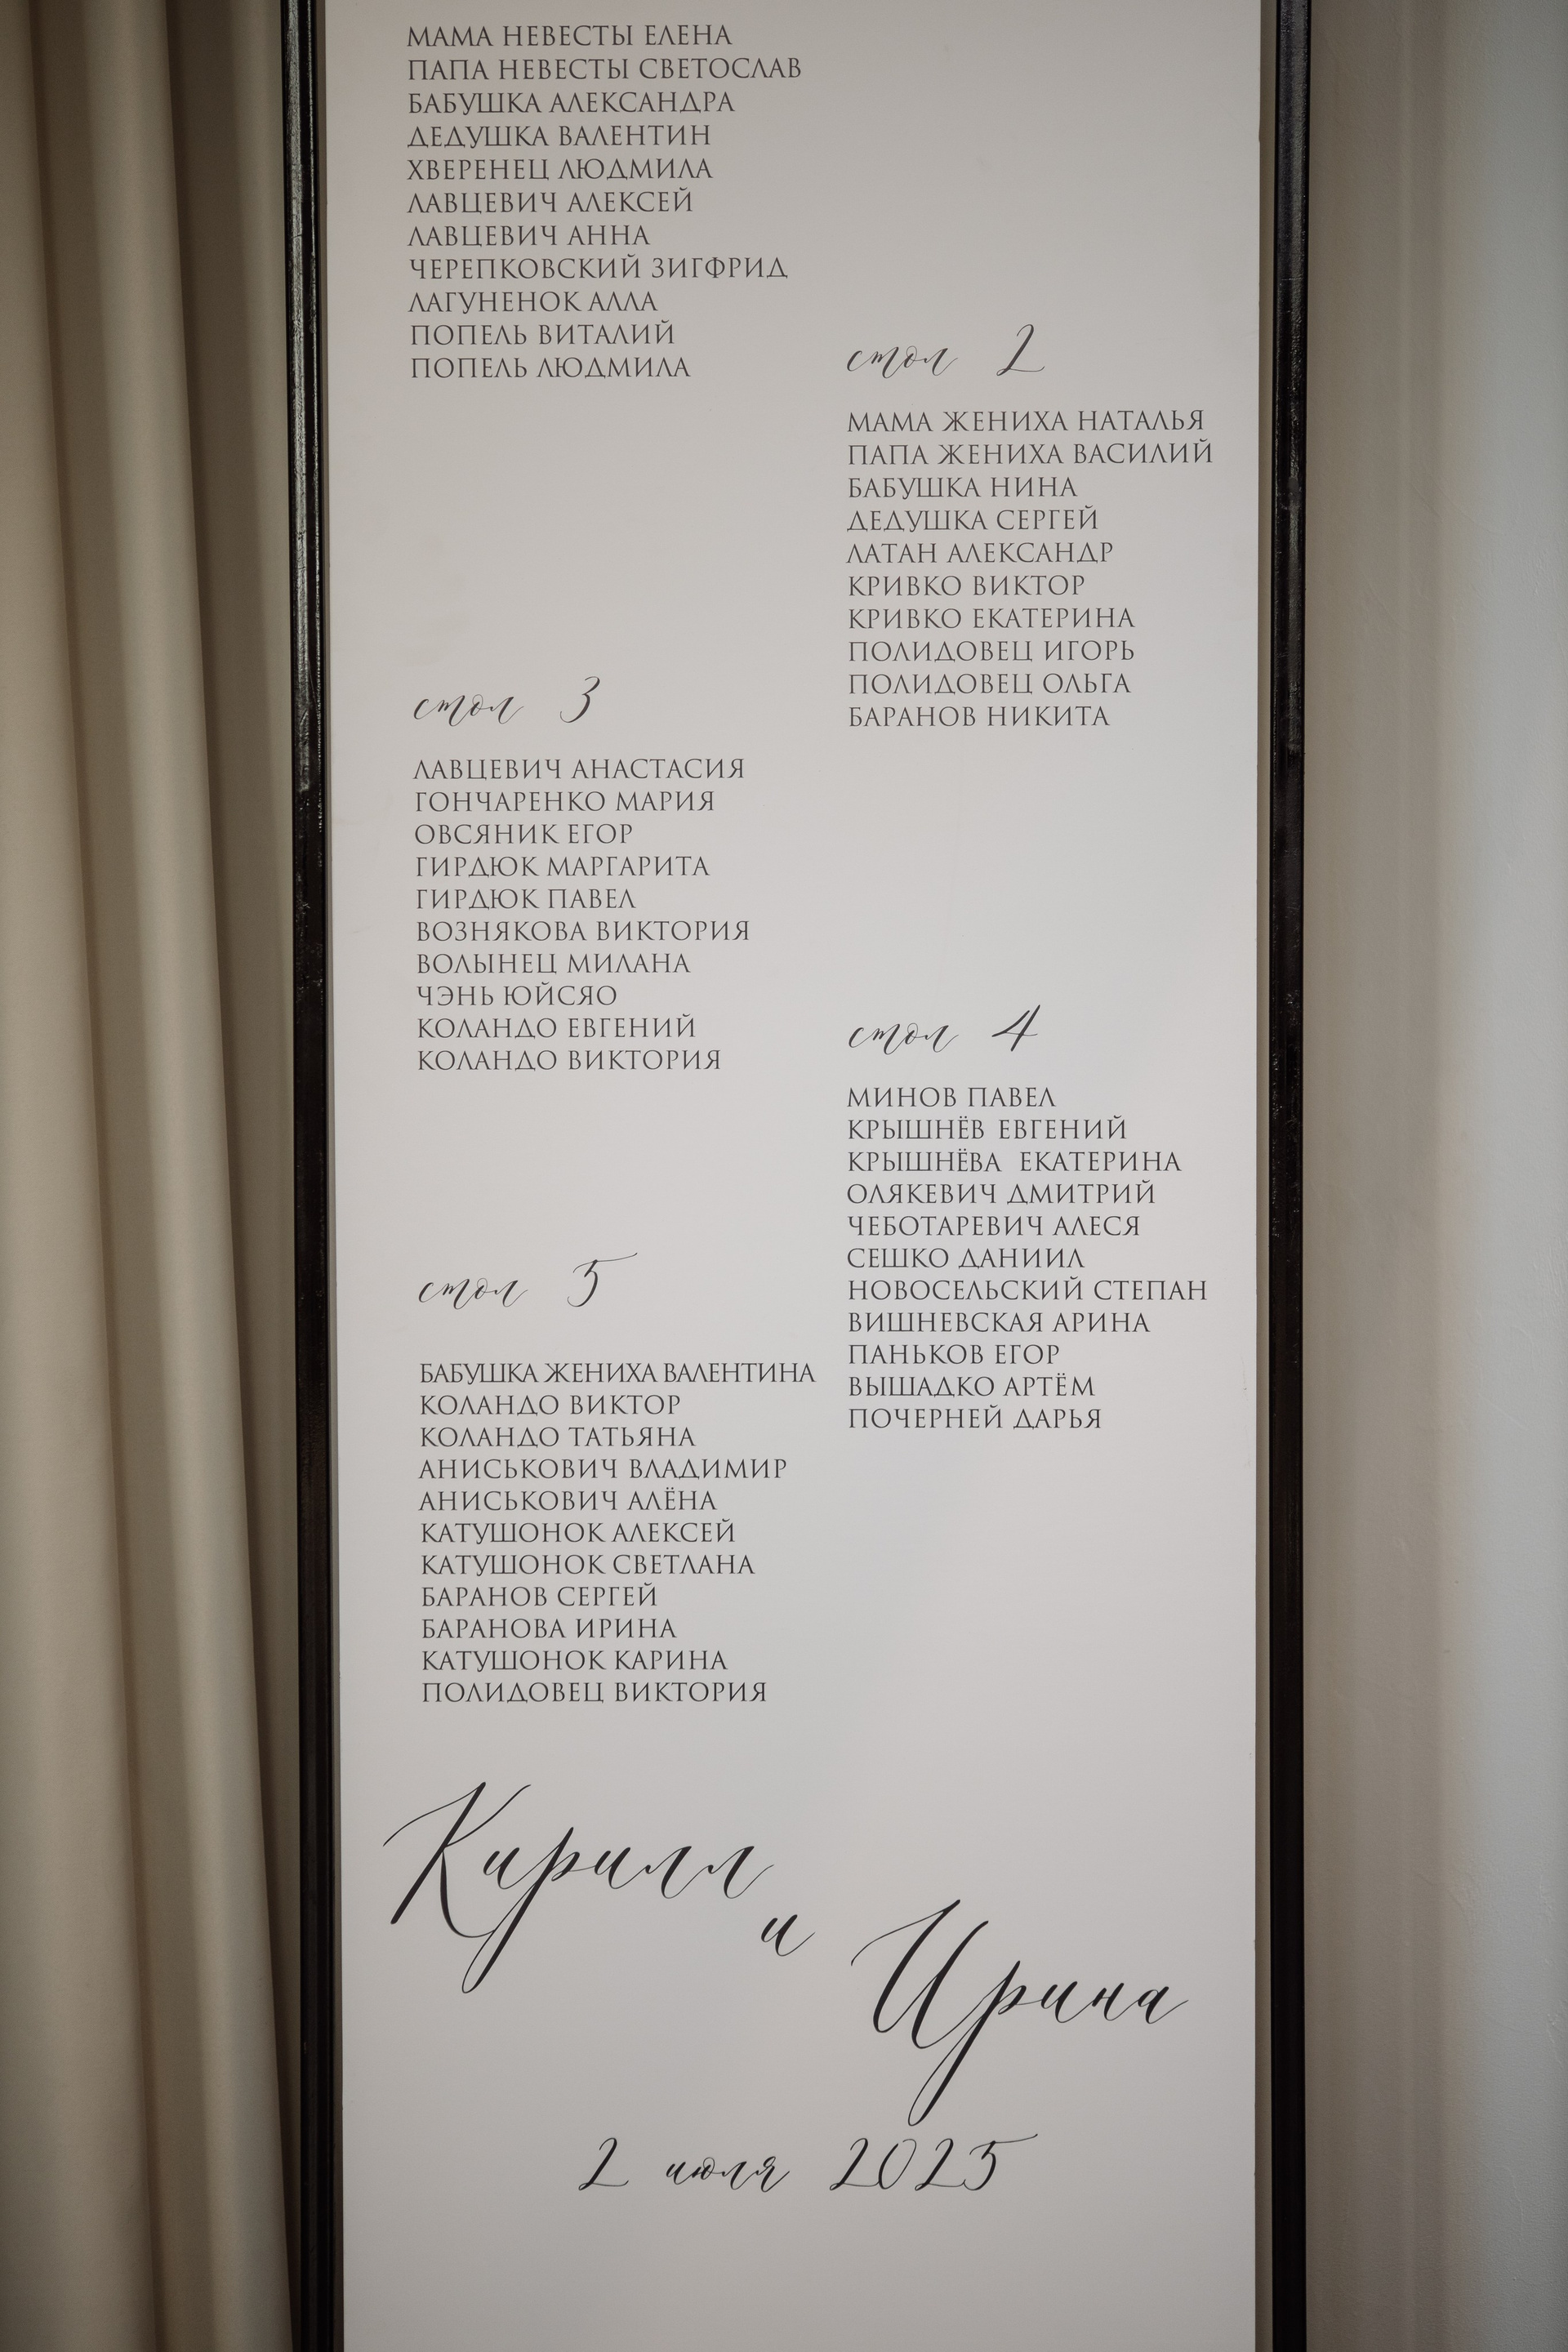 МАМА НЕВЕСТЫ ЕЛЕНА
ПАПА НЕВЕСТЫ СВЕТОСЛАВ
БАБУШКА АЛЕКСАНДРА
ДЕДУШКА ВАЛЕНТИН
ХВЕРЕНЕЦ ЛЮДМИЛА
ЛАВЦЕВИЧ АЛЕКСЕЙ
ЛАВЦЕВИЧ АННА
ЧЕРЕПКОВСКИЙ ЗИГФРИД
ЛАГУНЕНОК АЛЛА
ПОПЕЛЬ ВИТАЛИЙ
ПОПЕЛЬ ЛЮДМИЛА
стол 2
МАМА ЖЕНИХА НАТАЛЬЯ
ПАПА ЖЕНИХА ВАСИЛИЙ
БАБУШКА НИНА
ДЕДУШКА СЕРГЕЙ
ЛАТАН АЛЕКСАНДР
КРИВКО ВИКТОР
КРИВКО ЕКАТЕРИНА
ПОЛИДОВЕЦ ИГОРЬ
ПОЛИДОВЕЦ ОЛЬГА
БАРАНОВ НИКИТА
стол 3
ЛАВЦЕВИЧ АНАСТАСИЯ
ГОНЧАРЕНКО МАРИЯ
ОВСЯНИК ЕГОР
ГИРДЮК МАРГАРИТА
ГИРДЮК ПАВЕЛ
ВОЗНЯКОВА ВИКТОРИЯ
ВОЛЫНЕЦ МИЛАНА
ЧЭНЬ ЮЙСЯО
КОЛАНДО ЕВГЕНИЙ
КОЛАНДО ВИКТОРИЯ
стол 4
МИНОВ ПАВЕЛ
КРЫШНЁВ ЕВГЕНИЙ
КРЫШНЁВА ЕКАТЕРИНА
ОЛЯКЕВИЧ ДМИТРИЙ
ЧЕБОТАРЕВИЧ АЛЕСЯ
СЕШКО ДАНИИЛ
НОВОСЕЛЬСКИЙ СТЕПАН
ВИШНЕВСКАЯ АРИНА
ПАНЬКОВ ЕГОР
ВЫШАДКО АРТЁМ
ПОЧЕРНЕЙ ДАРЬЯ
стол 5
БАБУШКА ЖЕНИХА ВАЛЕНТИНА
КОЛАНДО ВИКТОР
КОЛАНДО ТАТЬЯНА
АНИСЬКОВИЧ ВЛАДИМИР
АНИСЬКОВИЧ АЛЁНА
КАТУШОНОК АЛЕКСЕЙ
КАТУШОНОК СВЕТЛАНА
БАРАНОВ СЕРГЕЙ
БАРАНОВА ИРИНА
КАТУШОНОК КАРИНА
ПОЛИДОВЕЦ ВИКТОРИЯ
Кирилл
и
Ирина
2 июля 2025